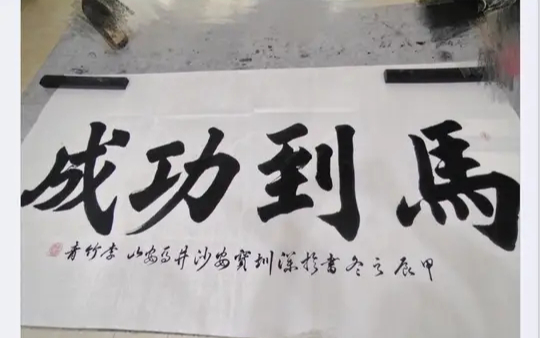 馬到功成
甲辰之冬書於深圳寶安沙井馬安山李竹青